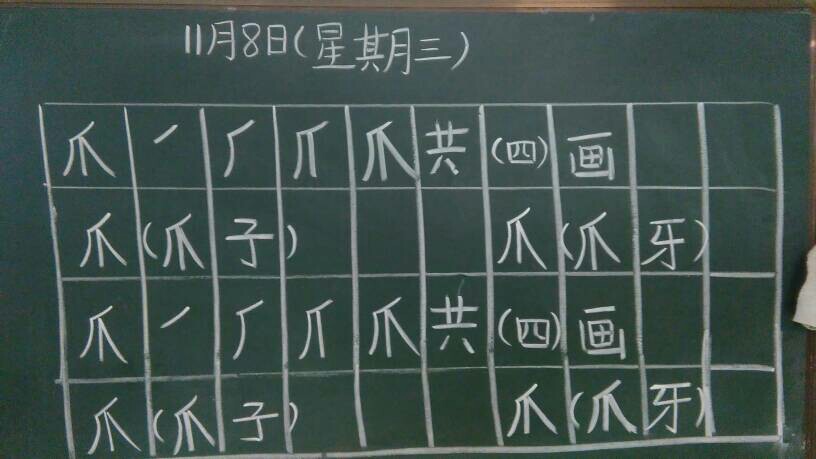 11月8日(星期三)
爪 ㇒ 𠂆 爪 共 (四) 画
爪 (爪子) 爪 (爪牙)
爪 ㇒ 𠂆 爪 共 (四) 画
爪 (爪子) 爪 (爪牙)